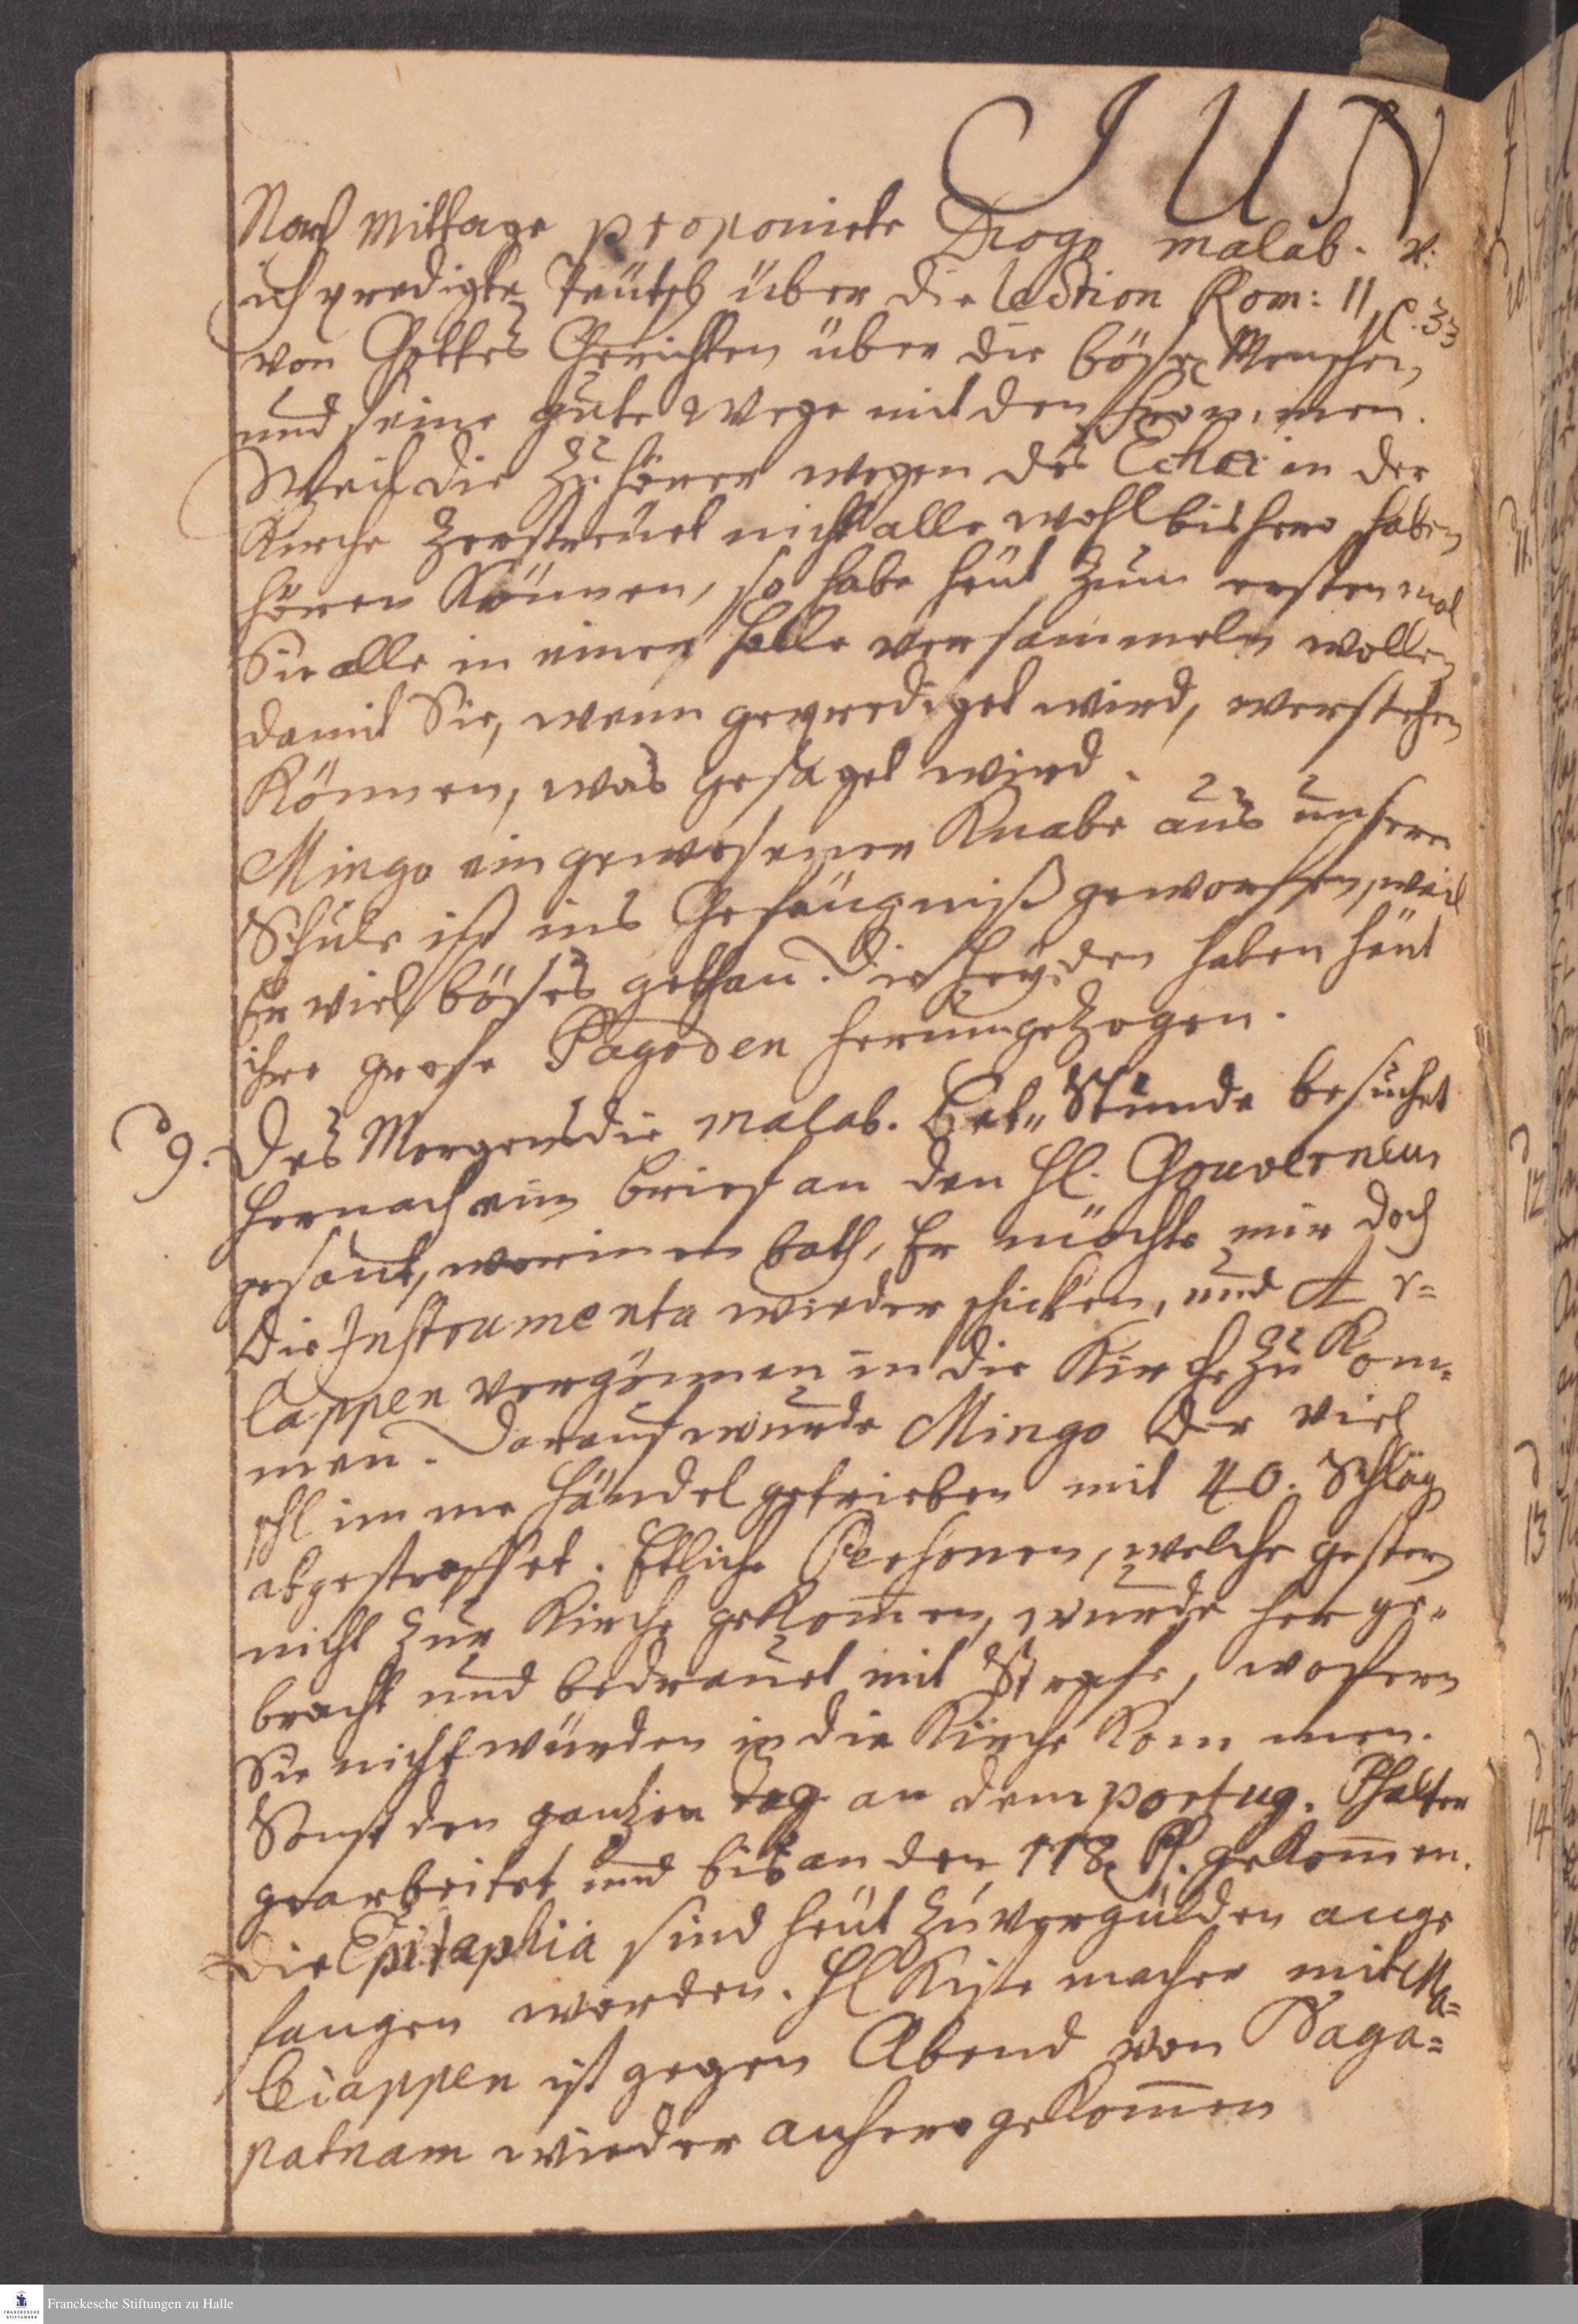 JUN
Nach Mittage proponirte Diogo malab. u:
ich predigte Teütsch über die lection Rom: 11, p. 33
von Gottes Gerichten über die böse Menschen,
und seine gute Wege mit den frommen.
Weil die Zuhörer wegen des Echoi in der
Kirche zerstreüet nicht alle wohl bishero haben
hören können, so habe heüt zum ersten mal
Sie alle in einer Helle versammeln wollen
damit Sie, wenn geprediget wird, verstehen
können, was gesaget wird.
Mingo ein gewesener Knabe aus unserer
Schule ist ins Gefängniß geworffen, weil
Er viel böses gethan. Die Heyden haben heüt
ihre grose Pagoden herumgezogen.
9. Des Morgens die malab. Bet-Stunde besuchet
hernach ein brief an den H. Gouverneur
gesant, worinnen bath, Er möchte mir doch
die Instrumenta wieder schicken, und Ar=
lappen vergönnen in die Kirche zu kom=
men. Darauf wurde Mingo der viel
schlimme Händel getrieben mit 40. Schläg
abgestraffet. Etliche Personen, welche gestern
nicht zur Kirche gekommen, wurde her ge=
bracht und bedrauet mit Strafe, wofern
Sie nicht würden in die Kirche kommen.
Sonst den gantzen Tag an dem portug. Psalter
gearbeitet und bis an den 118. Ps. gekommen.
Die Epitaphia sind heüt zu vergülden ange
fangen worden. H Kistemacher mit Ma=
leiappen ist gegen Abend von Naga=
patnam wieder anhero gekommen
10.
11.
12.
13
14
Franckesche Stiftungen zu Halle